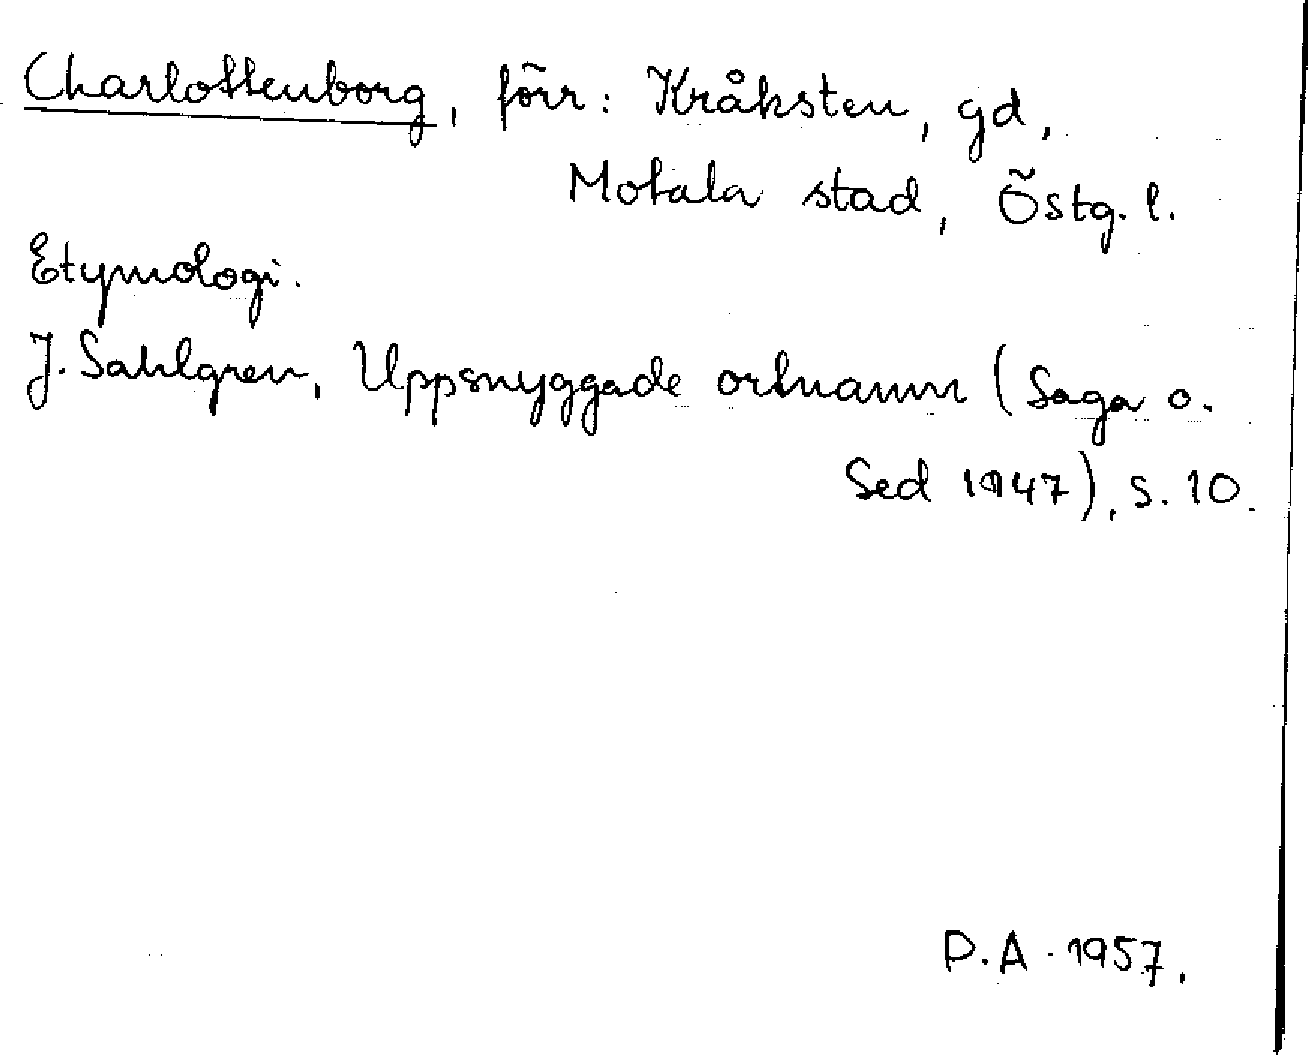 Charlottenborg, förr: Kråksten, gd,
Motala stad, Östg. l.
Etymologi.
J. Sahlgren, Uppsnyggade ortnamn (Saga o.
Sed 1947), s. 10.
P.A. 1957.